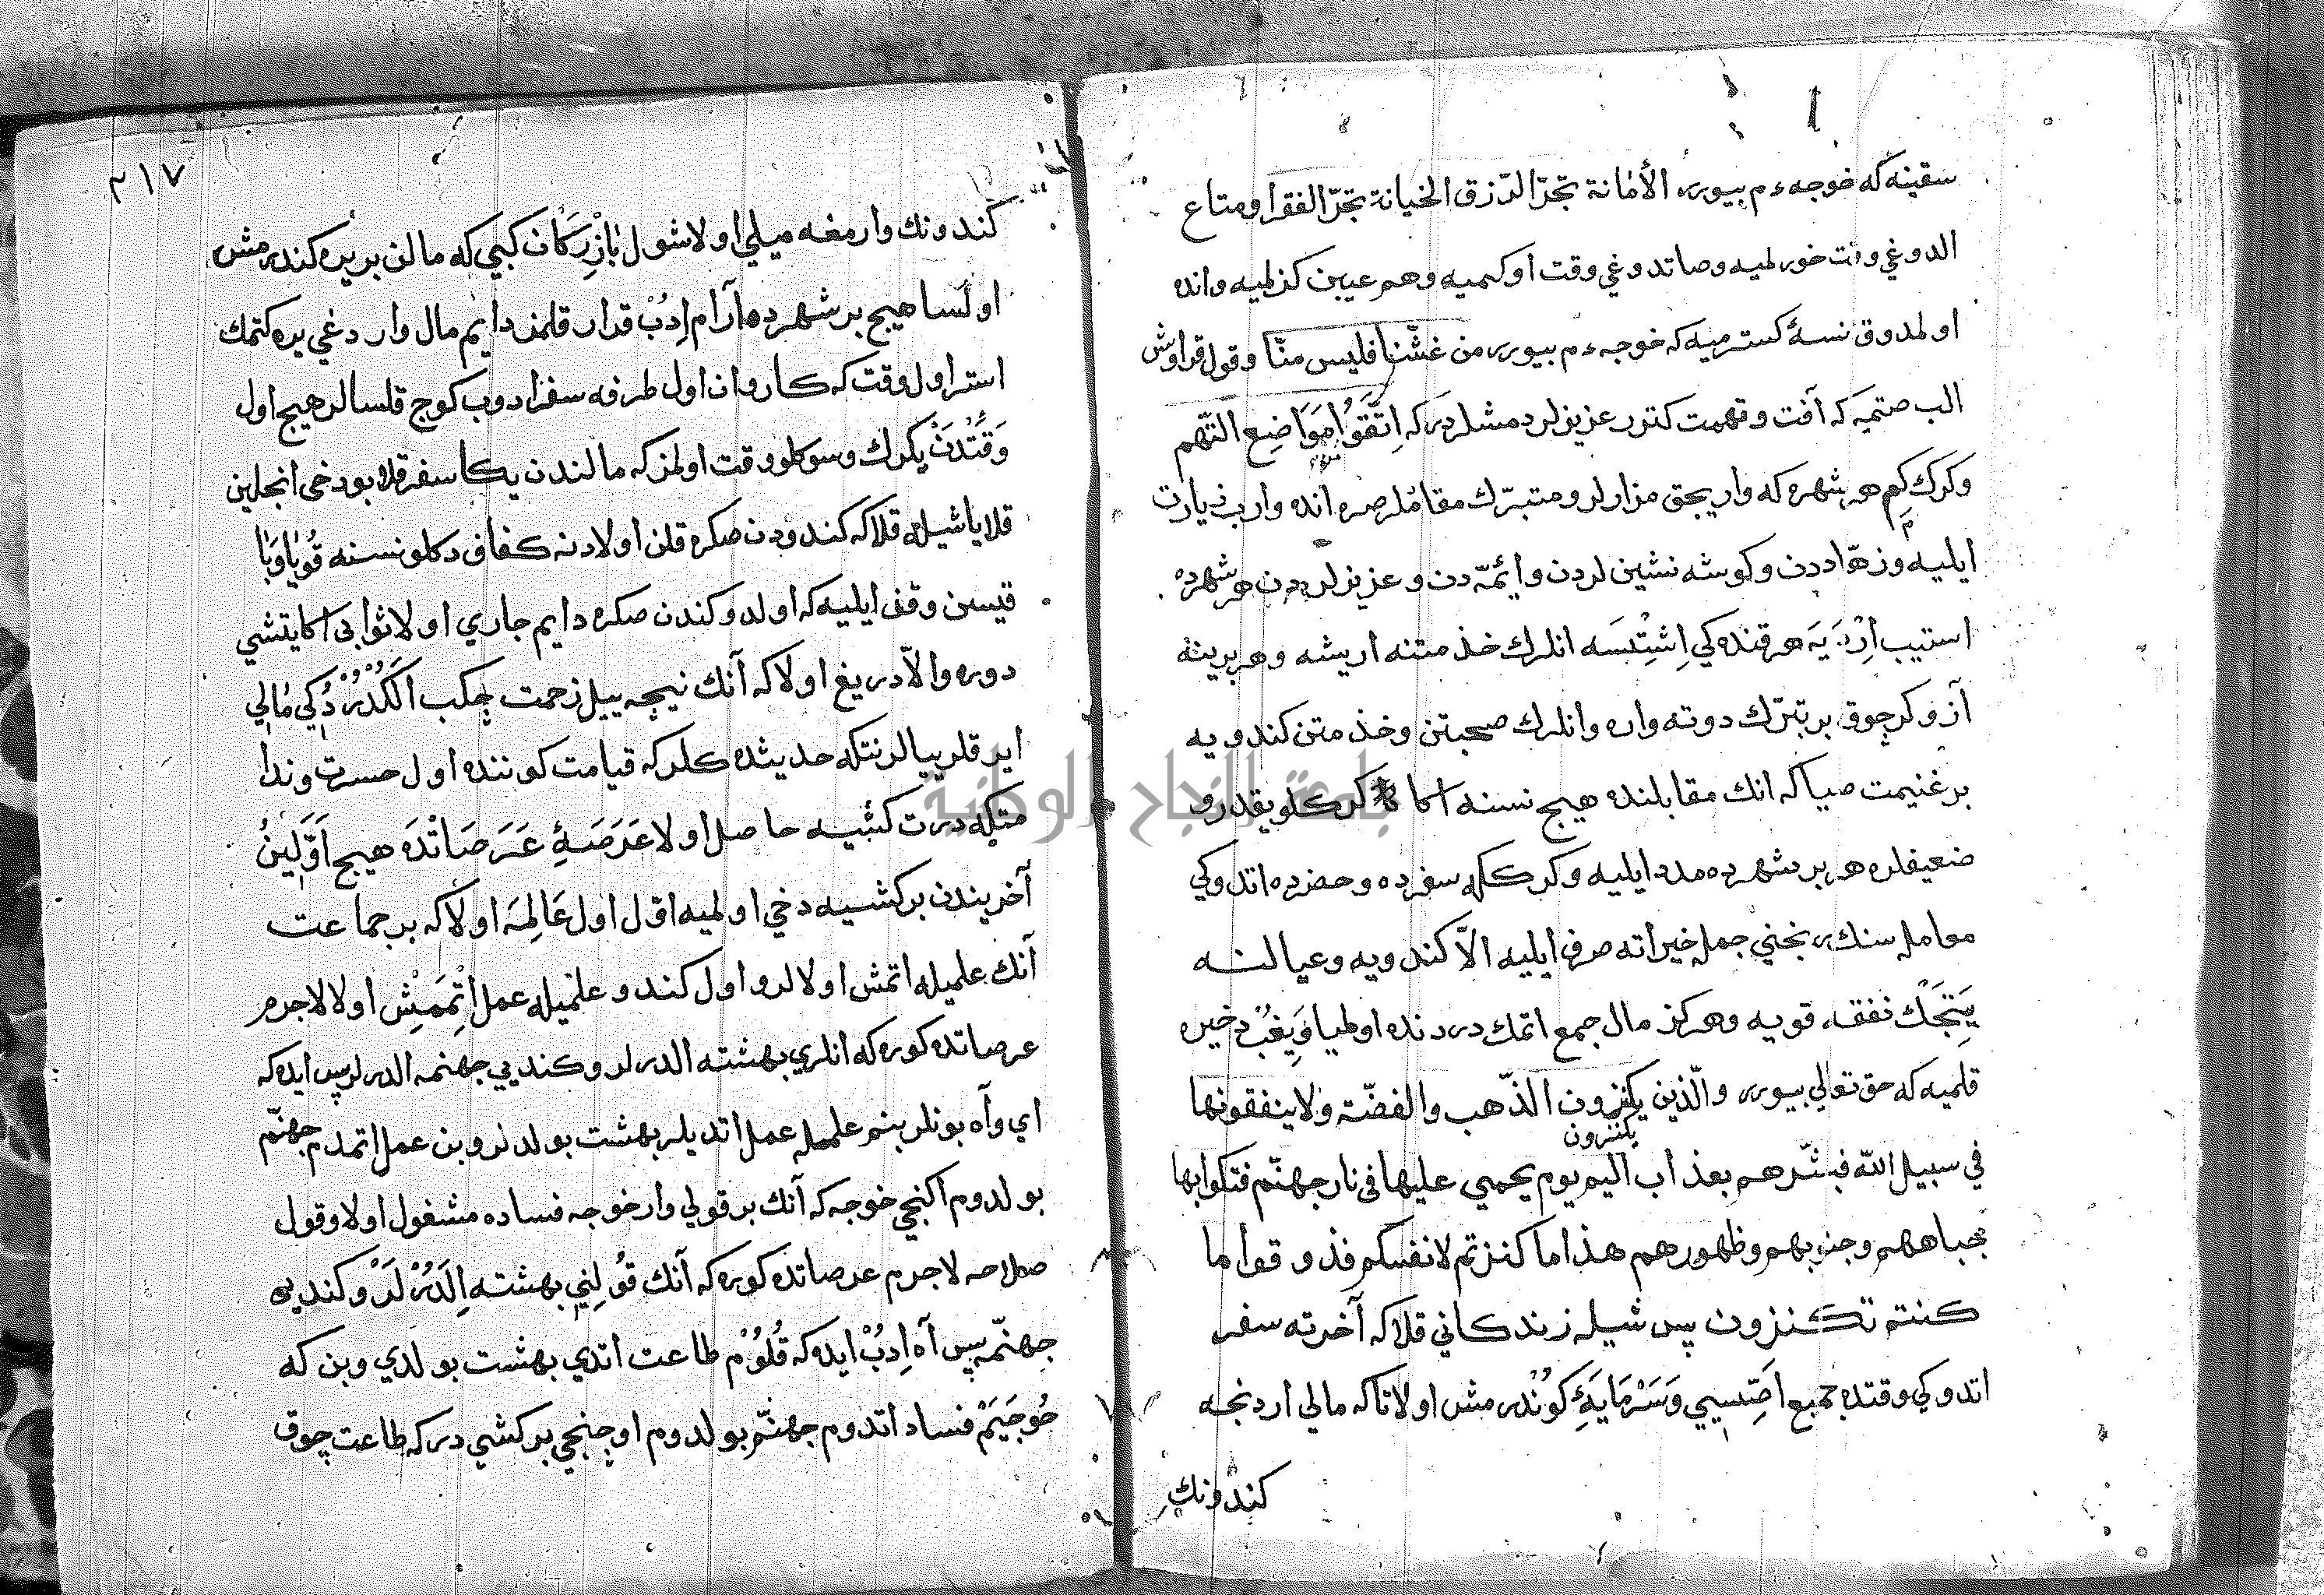 سقينه كه خوجه ءم بيورر الأمانة تجرّ الرّزق الخيانة تجرّ الفقر و متاع
الدوغي وقت خورلميه و صاتدوغي وقت اوكميه و هم عيبن كزلميه و انده
اولمدوق نسهٔ كسترميه كه خوجه ءم بيورر من غشّنا فليس منّا و قول قراوش
الب صتميه كه آفت و تهمت كتورر عزيزلر دمشلردر كه اِتَّقَوُا مَوَاضِع التّهم
و كرك كِم هر شهره كه واريجق مزارلر و متبرّك مقاملر صره انده وارب زيارت
ايليه و زهّاددن و كوشه نشين لردن و ائمّه دن و عزيزلردن هر شهرده
استيب اِرْدَيَه هر قنده كي اِشِتْسَه انلرك خذمتنه اريشه و هر برينه
آز و كر چوق بر تبرّك دوته واره و انلرك صحبتن و خذمتن كندويه
بر غنيمت صيا كه انك مقابلنده هيچ نسنه اكا كركلو يقدر و
ضعيفلره هر بر شهرده مدد ايليه و كركله سفرده و حضرده اتدوكي
معامله سنك ربحني جمله خيراته صرف ايليه الاّ كندويه و عيالنه
يَتِجَك نفقه قويه و هركز مال جمع اتمك دردنده اولميا و يِغُبْ ذخيره
قلميه كه حق تعالي بيورر والّذين يكنزون الذّهب والفضّة ولا ينفقونها
يكنزون
في سبيل الله فبشّرهم بعذاب اليم يوم يحمي عليها في نار جهنّم فتكوا بها
جباههم وجنوبهم وظهورهم هذا ما كنزتم لانفسكم فذوقوا ما
كنتم تكنزون پس شيله زندكاني قلا كه آخرته سفر
اتدوكي وقتده جميع اَصِّسيي وَسَرْمَايَهٔ كوُندرمش اولا تا كه مالي اردنجه
كندونك
٢١٧
كندونك وارمغه ميلي اولا شول بازِركان كبي كه مالن بر يره كندرمش
اولسا هيچ بر شهرده آرام اِدُبْ قرار قلمز دايم مال واردغي يره كتمك
استر اول وقت كه كاروان اول طرفه سفر ادوب كوچ قلسالر هيچ اول
وَقْتْدَنْ يكرك و سوكلو وقت اولمز كه مالندن يكا سفر قلا بو دخي انجلين
قلا ياشيله قلا كه كندودن صكره قلن اولادنه كفاف دكلو نسنه قُويَا وَيَا
قيسن وقف ايليه كه اولدوكندن صكره دايم جاري اولا ثوابي اكا يتشي
دوره و الاّ دريغ اولا كه آنك نيچه ييل زحمت چكب الكَدُرْدُكي مالي
اير قلر ييالر نتكه حديثده كلر كه قيامت كوننده اول حسرت و ندا
متكه درت كشيه حاصل اولا عَرَصَهٔ عَرَصَاتْدَه هيچ اَوَّلِينُ
آخريندن بر كشيه دخي اولميه اوّل اول عَالِمَه اولا كه بر جماعت
آنك علميله اتمش اولالر و اول كندو علميله عمل اِتْمَمِشْ اولا لاجرم
عرصاتده كوره كه انلري بهشته الدرلر و كنديي جهنمه الدرلر پس ايده كه
اي وآه بونلر بنم علمله عمل اتديلر بهشت بولدلر و بن عمل اتمدم جهنّم
بولدوم اكنجي خوجه كه آنك بر قولي وار خوجه فساده مشغول اولا و قول
صلاحه لاجرم عرصاتده كوره كه آنك قُولِني بهشته اِلَدُرْلَرْ و كنديي
جهنّمه پس آه اِدُبْ ايده كه قُلُوُم طاعت اتدي بهشت بولدي و بن كه
خُوجَيَمْ فساد اتدوم جهنّم بولدوم اوچنجي بر كشي در كه طاعت چوق